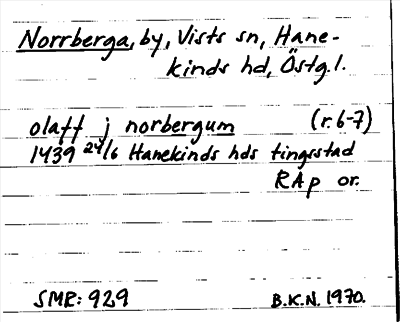 Norrberga, by, Vists sn, Hane-
kinds hd, Östg.l.
olaff j norbergum (r. 6-7)
1439 24/6 Hanekinds hds tingsstad
RAp or.
SMR: 929 B.K.N. 1970.